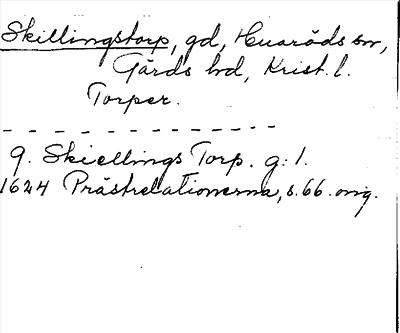 Skillingstorp, gd, Huaröds sn,
Gärds hd, Krist. l.
Torper.
9. Skiellings Torp. g: 1.
1624 Prästrelationerna, s. 66. orig.